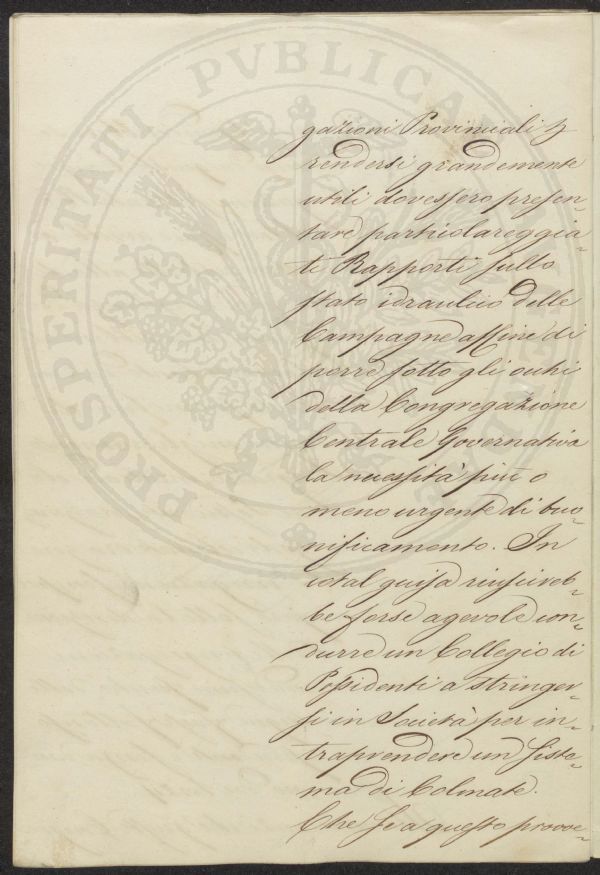 gazioni Provinciali p
rendersi grandemente
utili dovessero presen=
tare particolareggia=
ti Rapporti sullo
stato idraulico delle
Campagne affine di
porre sotto gli occhi
della Congregazione
Centrale Governativa
la necessità più o
meno urgente di buo=
nificamento. In
cotal guisa riuscireb=
be forse agevole con=
durre un Collegio di
Possidenti a stringer=
si in Società per in=
traprendere un siste=
ma di Colmate.
Che se a questo provve=
PROSPERITATI PVBLICAE